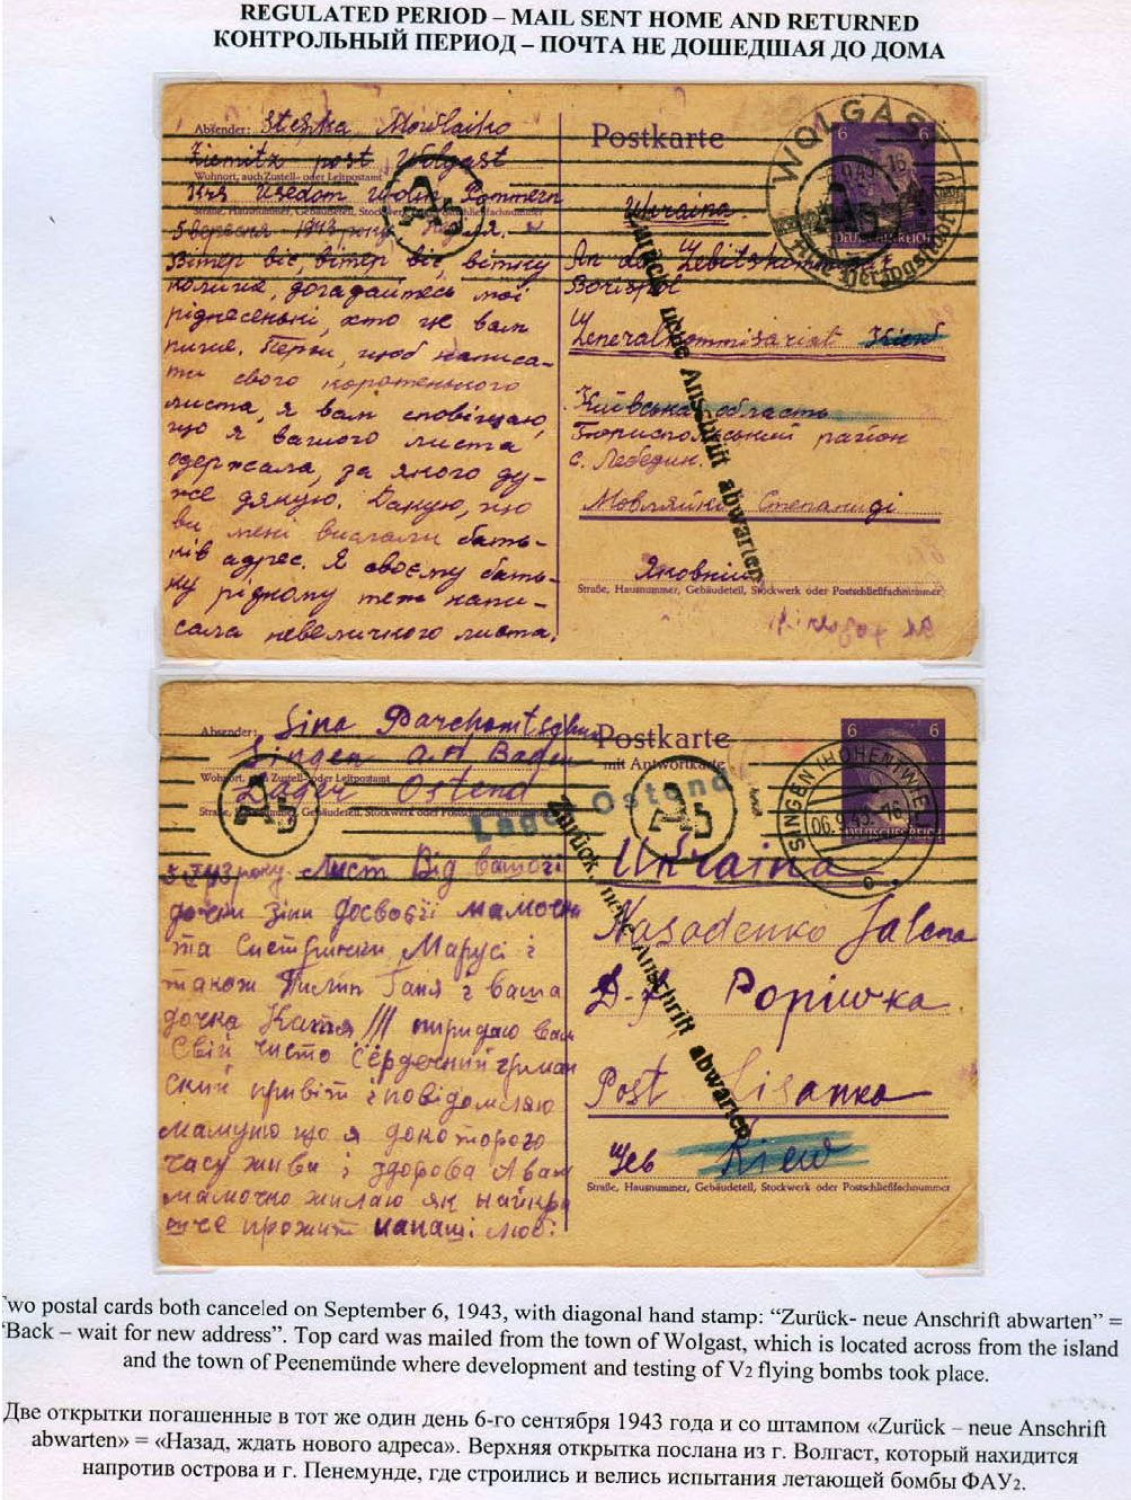 REGULATED PERIOD – MAIL SENT HOME AND RETURNED
КОНТРОЛЬНЫЙ ПЕРИОД – ПОЧТА НЕ ДОШЕДШАЯ ДО ДОМА
Absender:
Postkarte
WOLGAST
6 6
Ziemitz post Wolgast
Wohnort, auch Zustell- oder Leitpostamt
Krs Usedom Wolin, Pommern
Straße, Hausnummer, Gebäudeteil, Stockwerk oder Postschließfachnummer
Ab
Ab
DEUTSCHES REICH
Ukraina.
5 вересня 1943 року Неділя.
Вітер віє, вітер віє, вітку
колише, догадайтесь мої
ріднесенькі, хто це вам
пише. Перш, чюб написа-
ти свого коротенького
листа, я вам сповіщаю,
що я вашого листа
одержала, за якого ду-
же дякую. Дякую, що
ви мені вислали бать-
ків адрес. Я своєму бать-
ку рідному теж напи-
сала невеличкого листа.
Borispol
Generalkommisariat Kiew
Київська область
Бориспольський район
с. Лебедин.
Мовляйко Степаниді
Яковні
Straße, Hausnummer, Gebäudeteil, Stockwerk oder Postschließfachnummer
Zurück, neue Anschrift abwarten
Absender: Sina Parchomtschu
Postkarte
mit Antwortkarte
6 6
Singen A.H Baden
Wohnort, auch Zustell- oder Leitpostamt
Lager Ostend
Straße, Hausnummer, Gebäudeteil, Stockwerk oder Postschließfachnummer
Ab
Lager Ostend
Ab
SINGEN (HOHENTWIEL)
06.9.43. 16
DEUTSCHES REICH
Zurück, neue Anschrift abwarten
Ukraina
року Лист Від вашої
дочки Зіни досвоєї мамочки
та Систрички Марусі і
також Ганя і ваша
дочка Катя /// пиридаю вам
Свій чисто сердечний
ский привіт і повідомляю
мамушо що я докоторого
часу жива і здорова А вам
мамочко жилаю як найкра
Nasadenko Jalena
D-f Popiwka
Post Lisanka
Geb Kiew
Straße, Hausnummer, Gebäudeteil, Stockwerk oder Postschließfachnummer
Two postal cards both canceled on September 6, 1943, with diagonal hand stamp: “Zurück- neue Anschrift abwarten” =
“Back – wait for new address”. Top card was mailed from the town of Wolgast, which is located across from the island
and the town of Peenemünde where development and testing of V2 flying bombs took place.
Две открытки погашенные в тот же один день 6-го сентября 1943 года и со штампом «Zurück – neue Anschrift
abwarten» = «Назад, ждать нового адреса». Верхняя открытка послана из г. Волгаст, который находится
напротив острова и г. Пенемунде, где строились и велись испытания летающей бомбы ФАУ2.